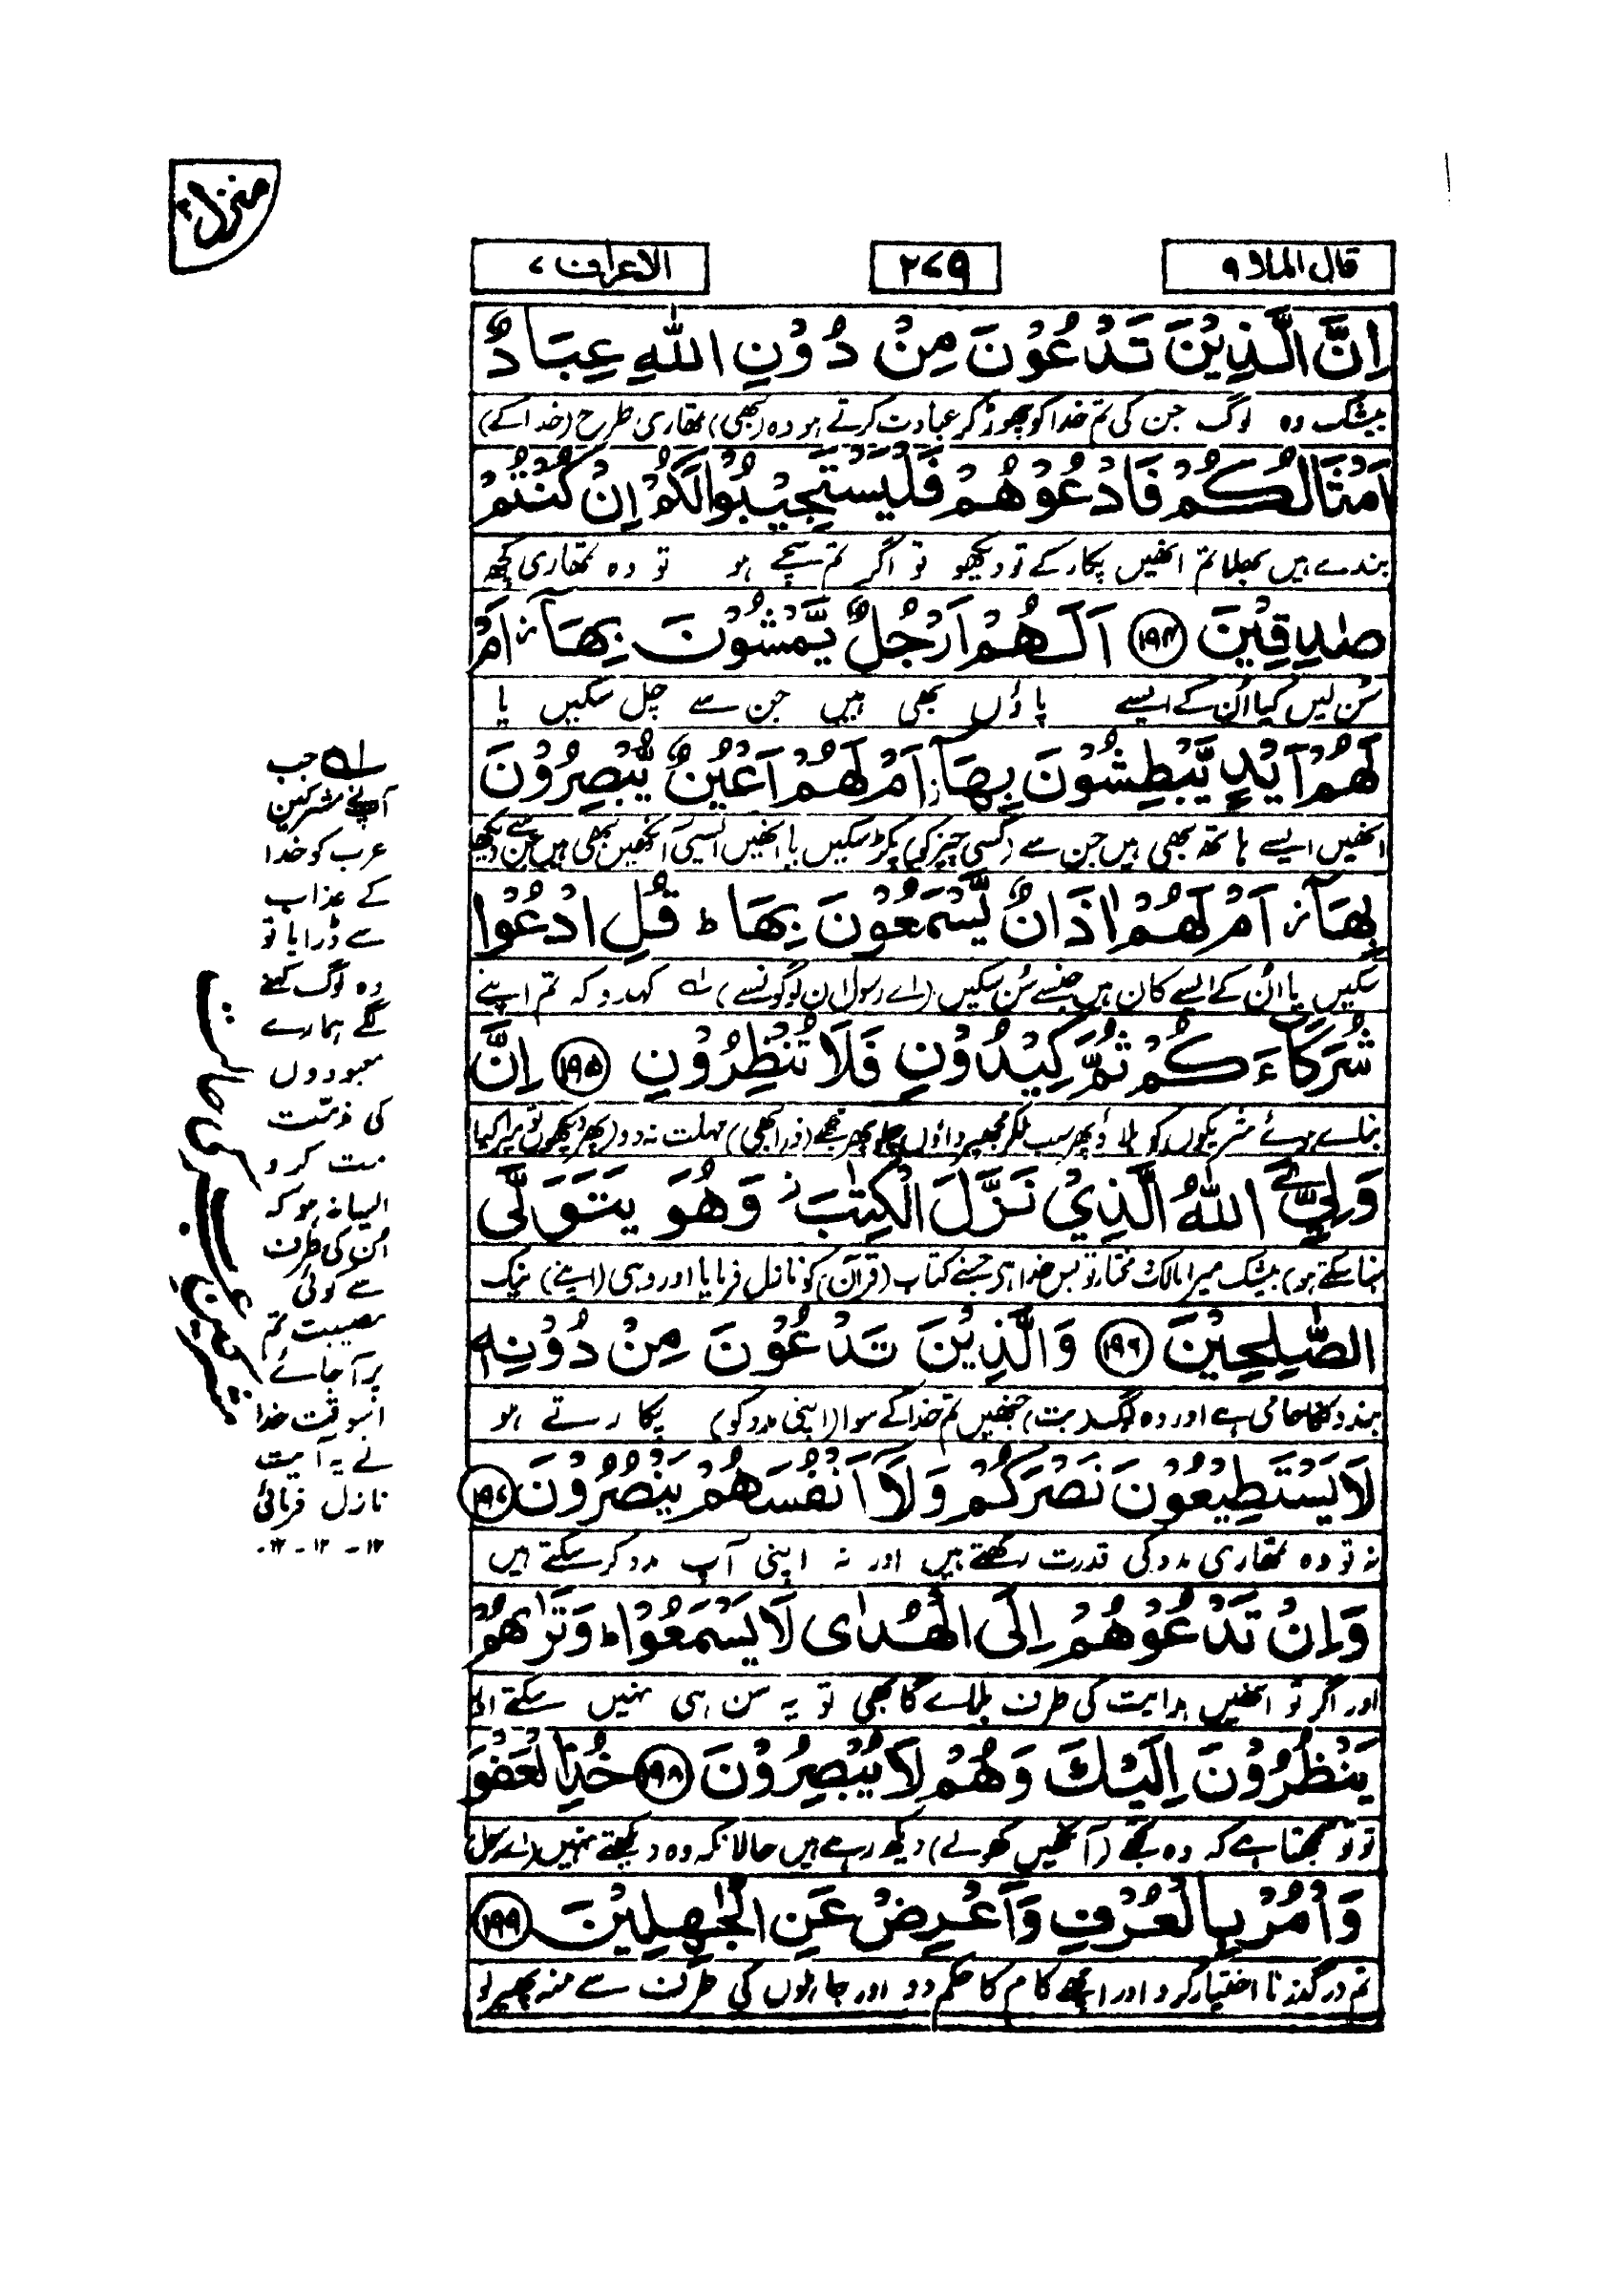 منزل ۲
قال الملا ۹
۲۷۹
الاعراف ۷
اِنَّ الَّذِیْنَ تَدْعُوْنَ مِنْ دُوْنِ اللّٰهِ عِبَادٌ
بیشک وہ لوگ جن کی تم خدا کو چھوڑ کر عبادت کرتے ہو وہ (بھی) تمھاری طرح (خدا کے)
اَمْثَالُكُمْ فَادْعُوْهُمْ فَلْیَسْتَجِیْبُوْا لَكُمْ اِنْ كُنْتُمْ
بندے ہیں بھلا تم انھیں پکار کے تو دیکھو تو اگر تم سچے ہو تو وہ تمھاری کچھ
صٰدِقِیْنَ ۱۹۴ اَلَهُمْ اَرْجُلٌ یَّمْشُوْنَ بِهَاۤ ز اَمْ
سُن لیں کیا اُن کے ایسے پاؤں بھی ہیں جن سے چل سکیں یا
لَهُمْ اَیْدٍ یَّبْطِشُوْنَ بِهَاۤ ز اَمْ لَهُمْ اَعْیُنٌ یُّبْصِرُوْنَ
انھیں ایسے ہاتھ بھی ہیں جن سے (کسی چیز کو) پکڑ سکیں یا انھیں ایسی آنکھیں بھی ہیں جن سے دیکھ
بِهَاۤ ز اَمْ لَهُمْ اٰذَانٌ یَّسْمَعُوْنَ بِهَا ط قُلِ ادْعُوْا
سکیں یا اُن کے ایسے کان ہیں جنسے سُن سکیں (اے رسول ان لوگونسے) ۱ کہدو کہ تم اپنے
شُرَكَآءَكُمْ ثُمَّ كِیْدُوْنِ فَلَا تُنْظِرُوْنِ ۱۹۵ اِنَّ
بنائے ہوئے شریکوں کو بلاؤ پھر سب ملکر مجھپر داؤں چلو پھر مجھے (ذرا بھی) مہلت نہ دو (پھر دیکھوں تو میرا کیا
وَلِیِّ َۧ اللّٰهُ الَّذِیْ نَزَّلَ الْكِتٰبَ ز وَهُوَ یَتَوَلَّی
بنا سکتے ہو) بیشک میرا مالک مختار تو بس خدا ہی جسنے کتاب (قرآن) کو نازل فرمایا اور وہی (اپنے) نیک
الصّٰلِحِیْنَ ۱۹۶ وَالَّذِیْنَ تَدْعُوْنَ مِنْ دُوْنِهٖ
بندونکا حامی ہے اور وہ لوگ (بت) جنھیں تم خدا کے سوا (اپنی مدد کو) پکارتے ہو
لَا یَسْتَطِیْعُوْنَ نَصْرَكُمْ وَلَاۤ اَنْفُسَهُمْ یَنْصُرُوْنَ ۱۹۷
نہ تو وہ تمھاری مدد کی قدرت رکھتے ہیں اور نہ اپنی آپ مدد کر سکتے ہیں
وَاِنْ تَدْعُوْهُمْ اِلَی الْهُدٰی لَا یَسْمَعُوْا ط وَتَرٰىهُمْ
اور اگر تو انھیں ہدایت کی طرف بلائے گا بھی تو یہ سن ہی نہیں سکتے اور
یَنْظُرُوْنَ اِلَیْكَ وَهُمْ لَا یُبْصِرُوْنَ ۱۹۸ خُذِ الْعَفْوَ
تو تو سمجھتا ہے کہ وہ تجھے (آنکھیں کھولے) دیکھ رہے ہیں حالانکہ وہ دیکھتے نہیں (اے رسول)
وَاْمُرْ بِالْعُرْفِ وَاَعْرِضْ عَنِ الْجٰهِلِیْنَ ۱۹۹
تم درگذرنا اختیار کرو اور اچھے کام کا حکم دو اور جاہلوں کی طرف سے منہ پھیر لو
۱ جب
آپنے مشرکین
عرب کو خدا
کے عذاب
سے ڈرایا تو
وہ لوگ کہنے
لگے ہمارے
معبودوں
کی مذمت
مت کرو
ایسا نہ ہو کہ
اُن کی طرف
سے کوئی
مصیبت تم
پر آجائے
اسوقت خدا
نے یہ آیت
نازل فرمائی
۱۲ - ۱۲ - ۱۲ -
مشرکین عرب کی حالت